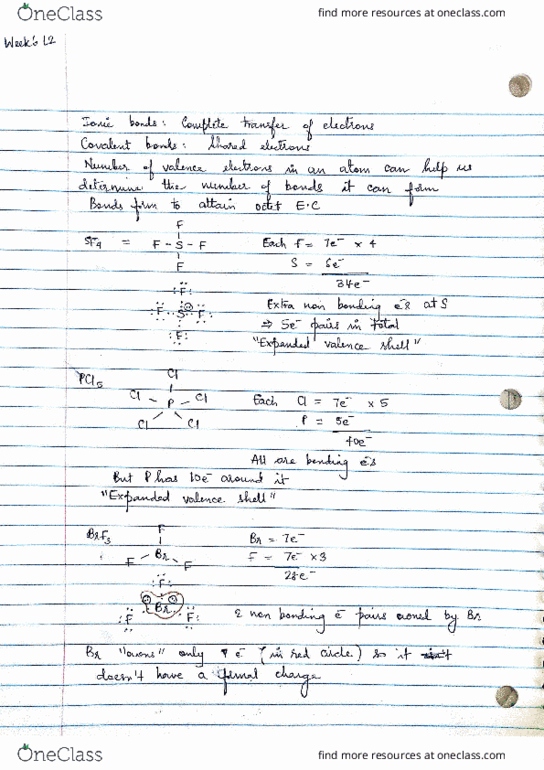 OneClass find more resources at oneclass.com
Week 6 L2
Ionic bonds: Complete transfer of electrons
Covalent bonds: Shared electrons
Number of valence electrons in an atom can help us
determine the number of bonds it can form
Bonds form to attain octet E.C
F
SF4 = F - S - F Each F = 7e- x 4
F S = 6e-
34e-
:F: Extra non bonding e's at S
:F: S F: ⇒ 5e- pairs in total
:F: "Expanded valence shell"
PCl5 Cl
Cl - P - Cl Each Cl = 7e- x 5
Cl Cl P = 5e-
40e-
All are bonding e's
But P has 10e- around it
"Expanded valence shell"
BrF3 F Br = 7e-
F - Br - F F = 7e- x3
28e-
:F:
Br
:F: F: 2 non bonding e- pairs owned by Br
Br "owns" only 7 e- (in red circle) so it
doesn't have a formal charge
OneClass find more resources at oneclass.com